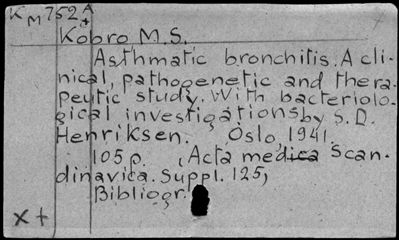 KM752A
+
Kobro M.S.
Asthmatic bronchitis. A cli-
nical, pathogenetic and thera-
peutic study. With bacteriolo-
gical investigations by S.D.
Henriksen. Oslo, 1941.
105 p. (Acta medica Scan-
dinavica. Suppl. 125)
Bibliogr.
x +